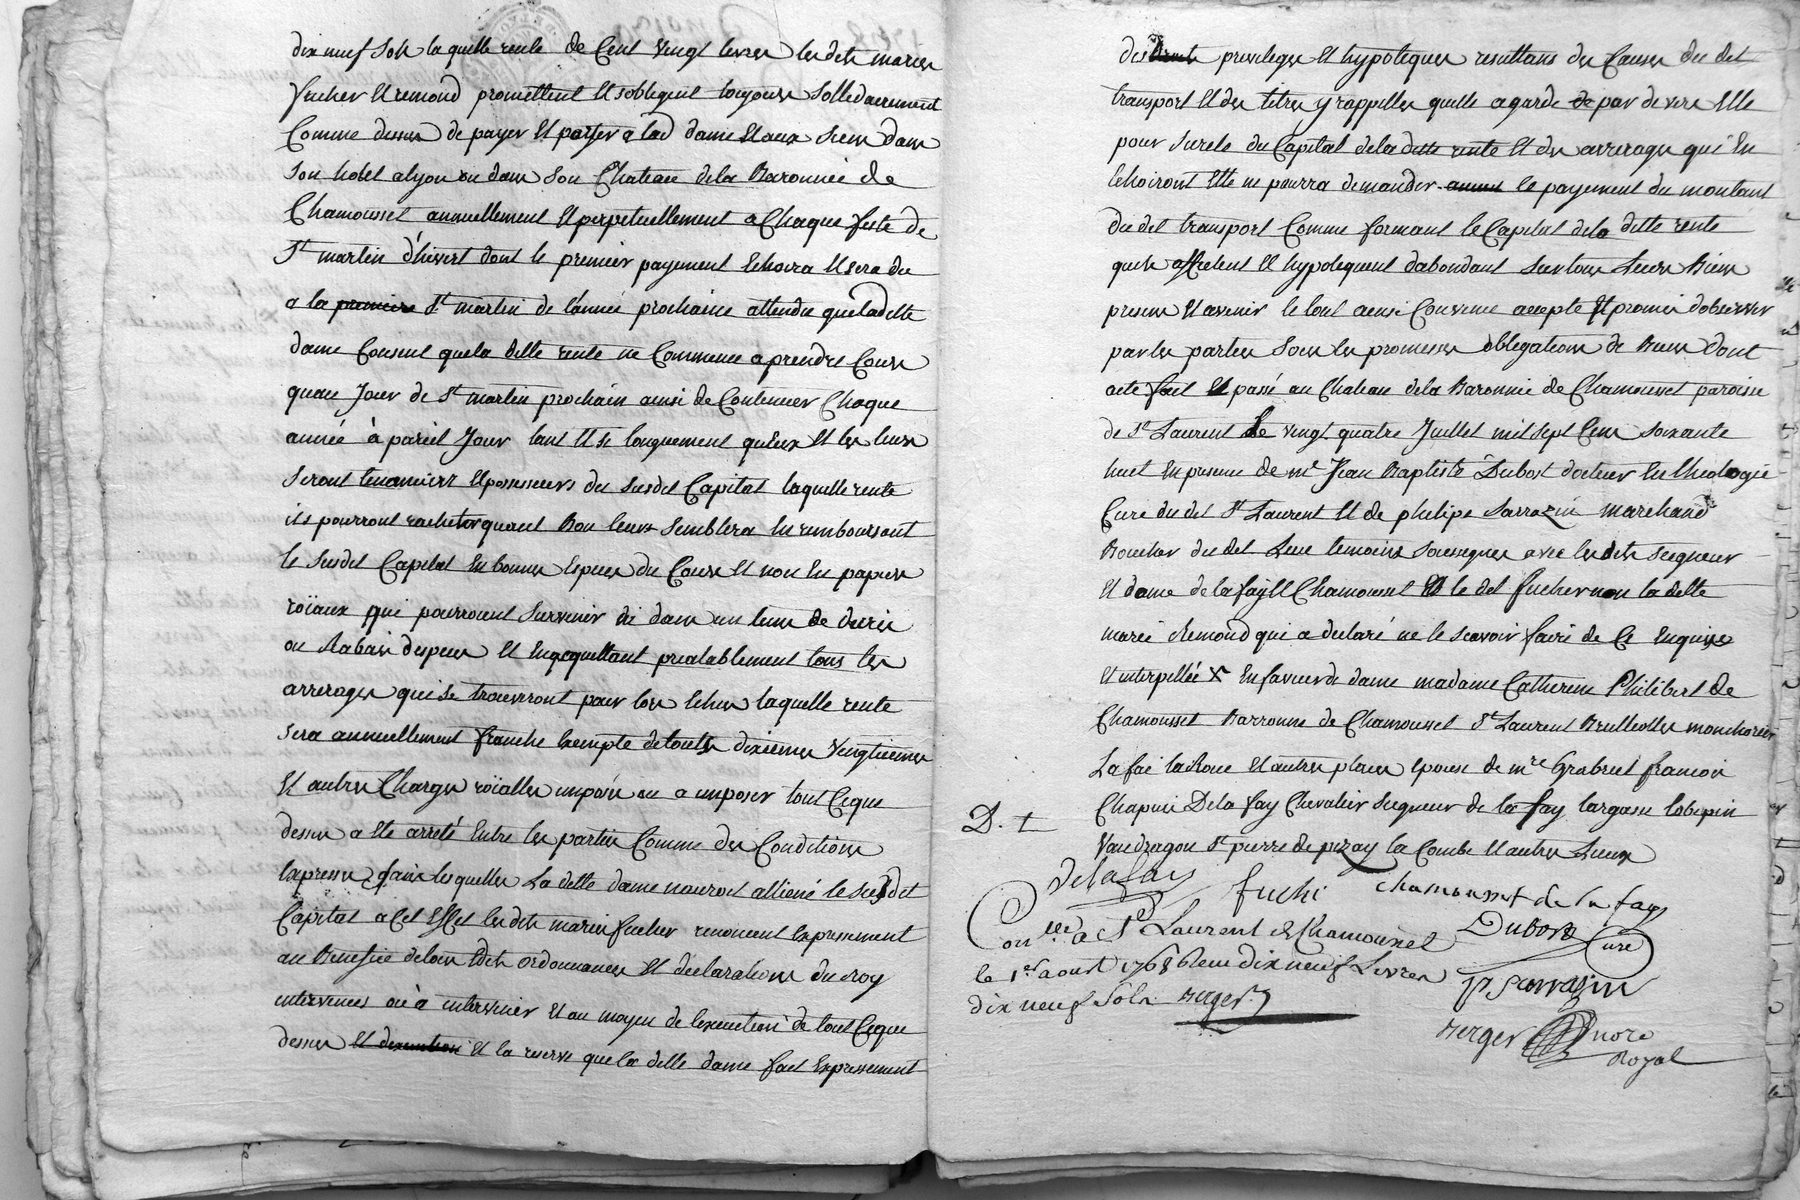 dix neuf sols laquelle rente de Cent vingt livres lesdits mariés
fucher et remond promettent et sobligent toujours sollidairement
Comme dessus de payer et porter a lad dame et aux siens dans
son hotel a lyon ou dans son Chateau dela Baronnie de
Chamousset annuellement et perpetuellement a Chaque feste de
St martin d'hivert dont le premier payement echoira et sera du
a la premiere St martin de l'année prochaine attendu queladitte
dame Consent quela ditte rente ne Commence a prendre Cours
quau Jour de St martin prochain ainsi de Continuer Chaque
année à pareil Jour tant et si longuement qu'eux et les leurs
seront tenanciers et possesseurs du susdit Capital laquelle rente
ils pourront racheter quant Bon leurs semblera en remboursant
le susdit Capital en bonnes Especes du Cours et non en papiers
roïaux qui pourroient survenir di dans un tems de
ou Rabais despeces et En acquittant prealablement tous les
arrerages qui se trouveront pour lors Echus laquelle rente
sera annuellement franche Exempte de touttes dixiemes vingtiemes
et autres Charges roïalles imposés ou a imposer tout Ceque
dessus a ete arreté Entre les parties Comme des Conditions
Expresses sans lesquelles La ditte dame nauroit alliené le susdit
Capital a Cet Effet lesdits mariés fucher renoncent expressement
au Benefice detous Edits ordonnances et declarations du roy
intervenues ou à intervenir et au moyen de lexecution de tout Ceque
dessus et dexecution et la reserve que la ditte dame fait expressement
des privileges et hypoteques resultans des Causes du dit
transport et des titres y rappelles quelle a garde de par devers Elle
pour surete du Capital dela ditte rente et des arrerages qui En
Echoiront Elle ne pourra demander le payement du montant
du dit transport Comme formant le Capital dela ditte rente
quils affectent et hypotequent dabondant sur tous Leurs Biens
presens et avenir le tout ainsi Convenu accepte et promis dobserver
par les parties sous les promesses obligations de Biens dont
acte fait et passé au Chateau dela Baronnie de Chamousset paroisse
de St Laurent Le vingt quatre Juillet mil sept Cens soixante
huit En presence de mr Jean Baptiste Dubost docteur En theologie
Curé du dit St Laurent et de philipe Sarrazin marchand
Boucher du dit Lieu temoins soussignes avec lesdits seigneur
et dame de la fay et Chamousset et le dit fucher non la ditte
marie Remond qui a declaré ne le scavoir faire de Ce Enquise
et interpellée x En faveur de dame madame Catherine Philibert de
Chamousset Barronne de Chamousset St Laurent Brulliolles monchorier
La fai la Roue et autres places epouse de mre Gabriel francois
Chapuis Dela fay Chevalier Seigneur de la fay largasse lobepin
D. t
Vaudragon St pierre de pizay la Combe et autres Lieux
Delafay
fuchi
Chamousset de la fay
Conllé a St Laurent de Chamousset
Dubost Curé
le 1er aoust 1768 Reçu dix neuf Livres
P Sarrazin
dix neuf sols Berger
Berger nore
Royal